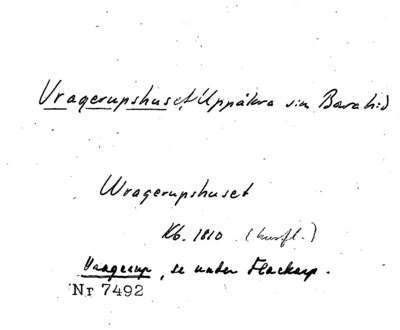 Vragerupshuset Uppåkra sn Bara hd
Wragerupshuset
Kb. 1810 (husfl.)
Vragerup, se under Flackarp.
Nr 7492